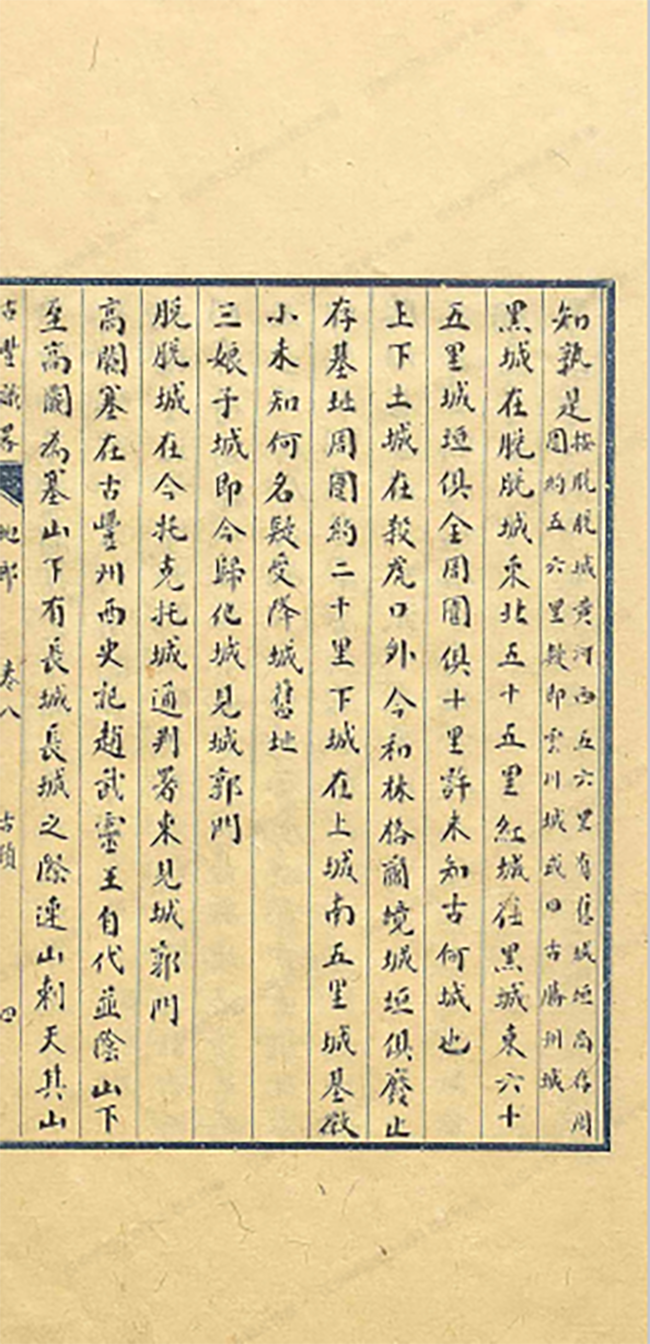 知孰是按脫脫城黃河西五六里有舊城垣尚存周
圍約五六里疑即雲川城或曰古勝州城
黑城在脫脫城東北五十五里紅城在黑城東六十
五里城垣俱全周圍俱十里許未知古何城也
上下土城在殺虎口外今和林格爾境城垣俱廢止
存基址周圍約二十里下城在上城南五里城基微
小未知何名疑受降城舊址
三娘子城即今歸化城見城郭門
脫脫城在今托克托城通判署東見城郭門
高闕塞在古豐州西史記趙武靈王自代並陰山下
至高闕為塞山下有長城長城之際連山刺天其山
古豐識畧 地部 卷八 古蹟 四